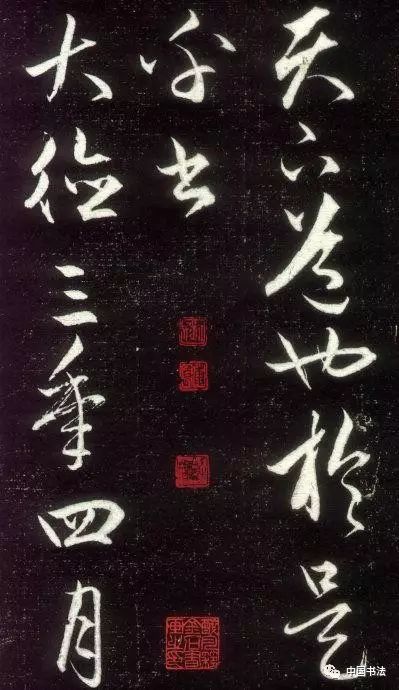 天下道也於是
乎書
大德三年四月
中国书法